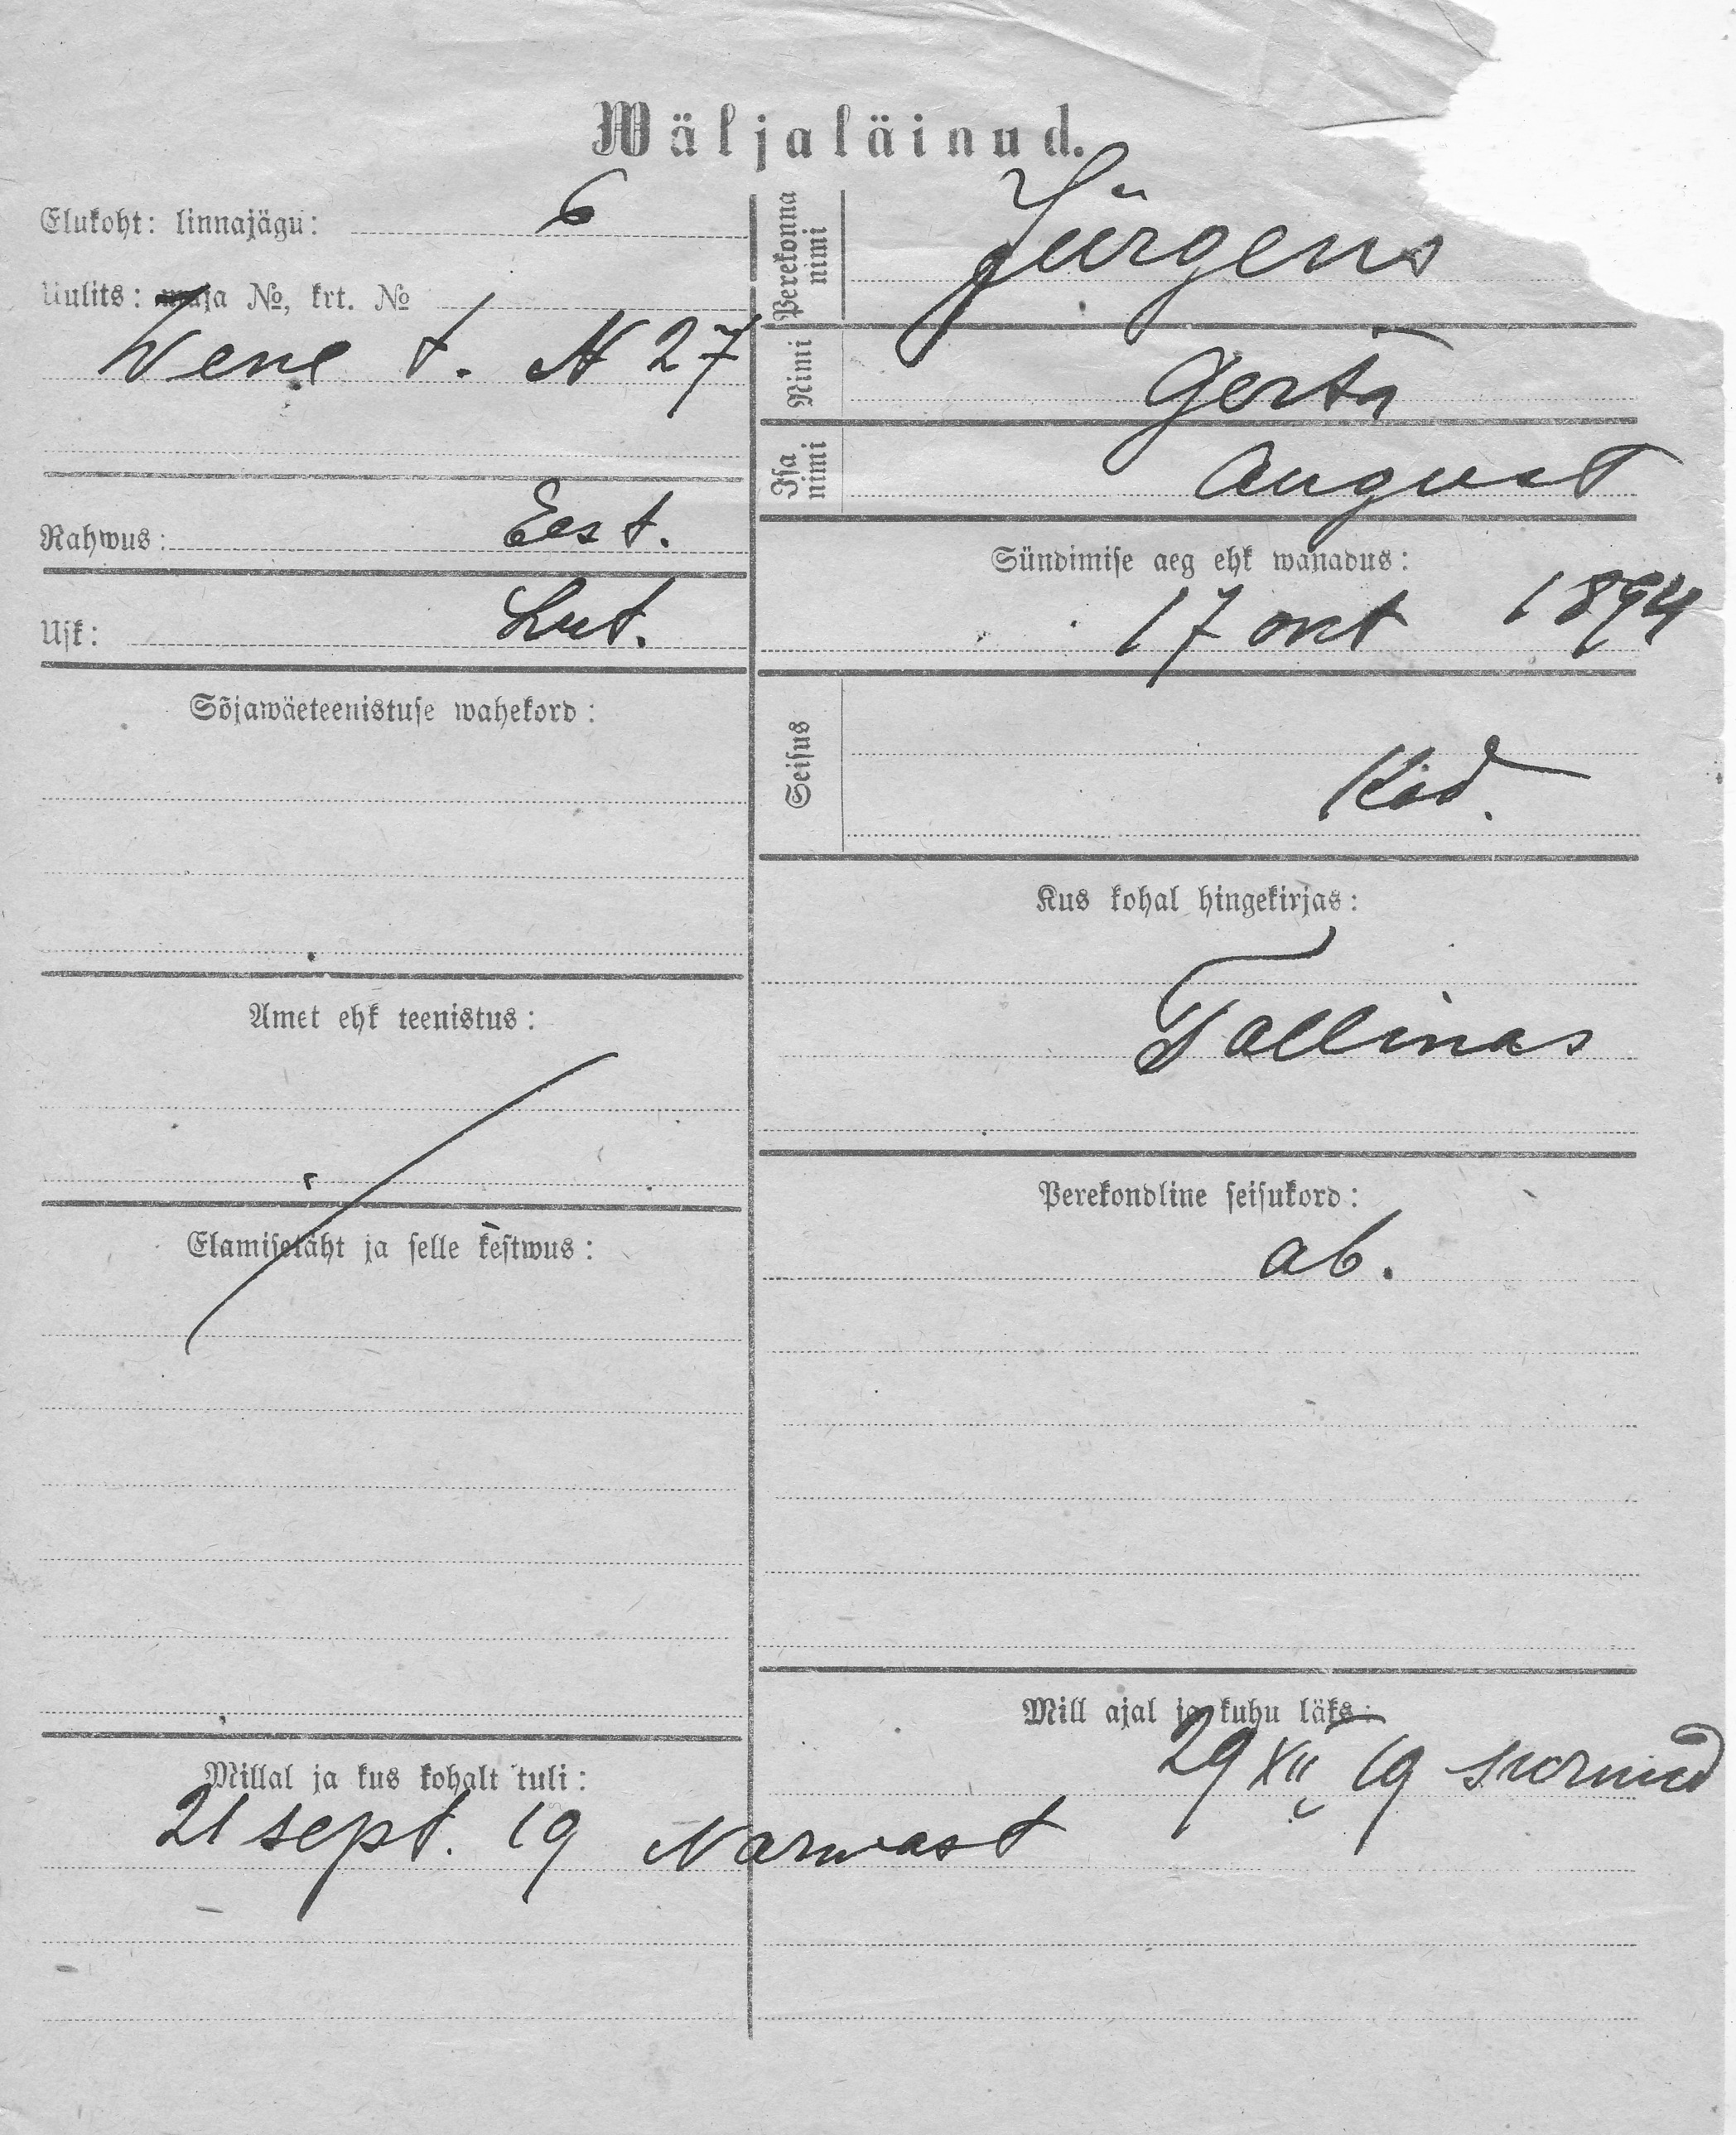 Wäljaläinud.
Elukoht: linnajägu: 6
Uulits: maja №, krt. №
Wene t. N 27
Rahwus: Eest.
Usk: Lut.
Sõjawäeteenistuse wahekord:
Amet ehk teenistus:
Elamisetäht ja selle kestwus:
Millal ja kus kohalt tuli:
21 sept. 19 Narwast
Perekonna nimi Jürgens
Nimi Gerta
Isa nimi August
Sündimise aeg ehk wanadus:
17 okt 1894
Seisus
Kod.
Kus kohal hingekirjas:
Tallinas
Perekondline seisukord:
ab.
Mill ajal ja kuhu läks:
29 XII 19 surnud